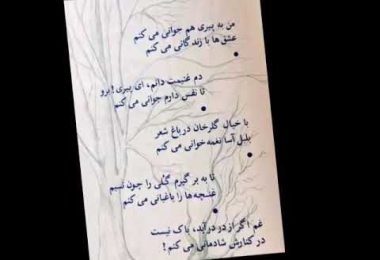 من به پیری هم جوانی می کنم
عشق ها با زندگانی می کنم
دم غنیمت دانم، ای پیری! برو
تا نفس دارم جوانی می کنم
با خیال گلرخان در باغ شعر
بلبل آسا نغمه خوانی می کنم
تا به بر گیرم گلی را چون نسیم
غنچه ها را باغبانی می کنم
غم اگر از در درآید، باک نیست
در کنارش شادمانی می کنم!